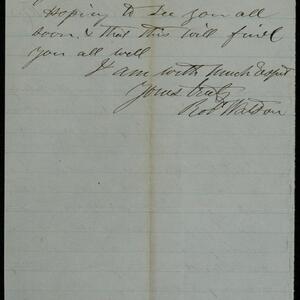 Hoping to see you all
soon & that this will find
you all well
I am with much respect
Yours truly
Robt Watson